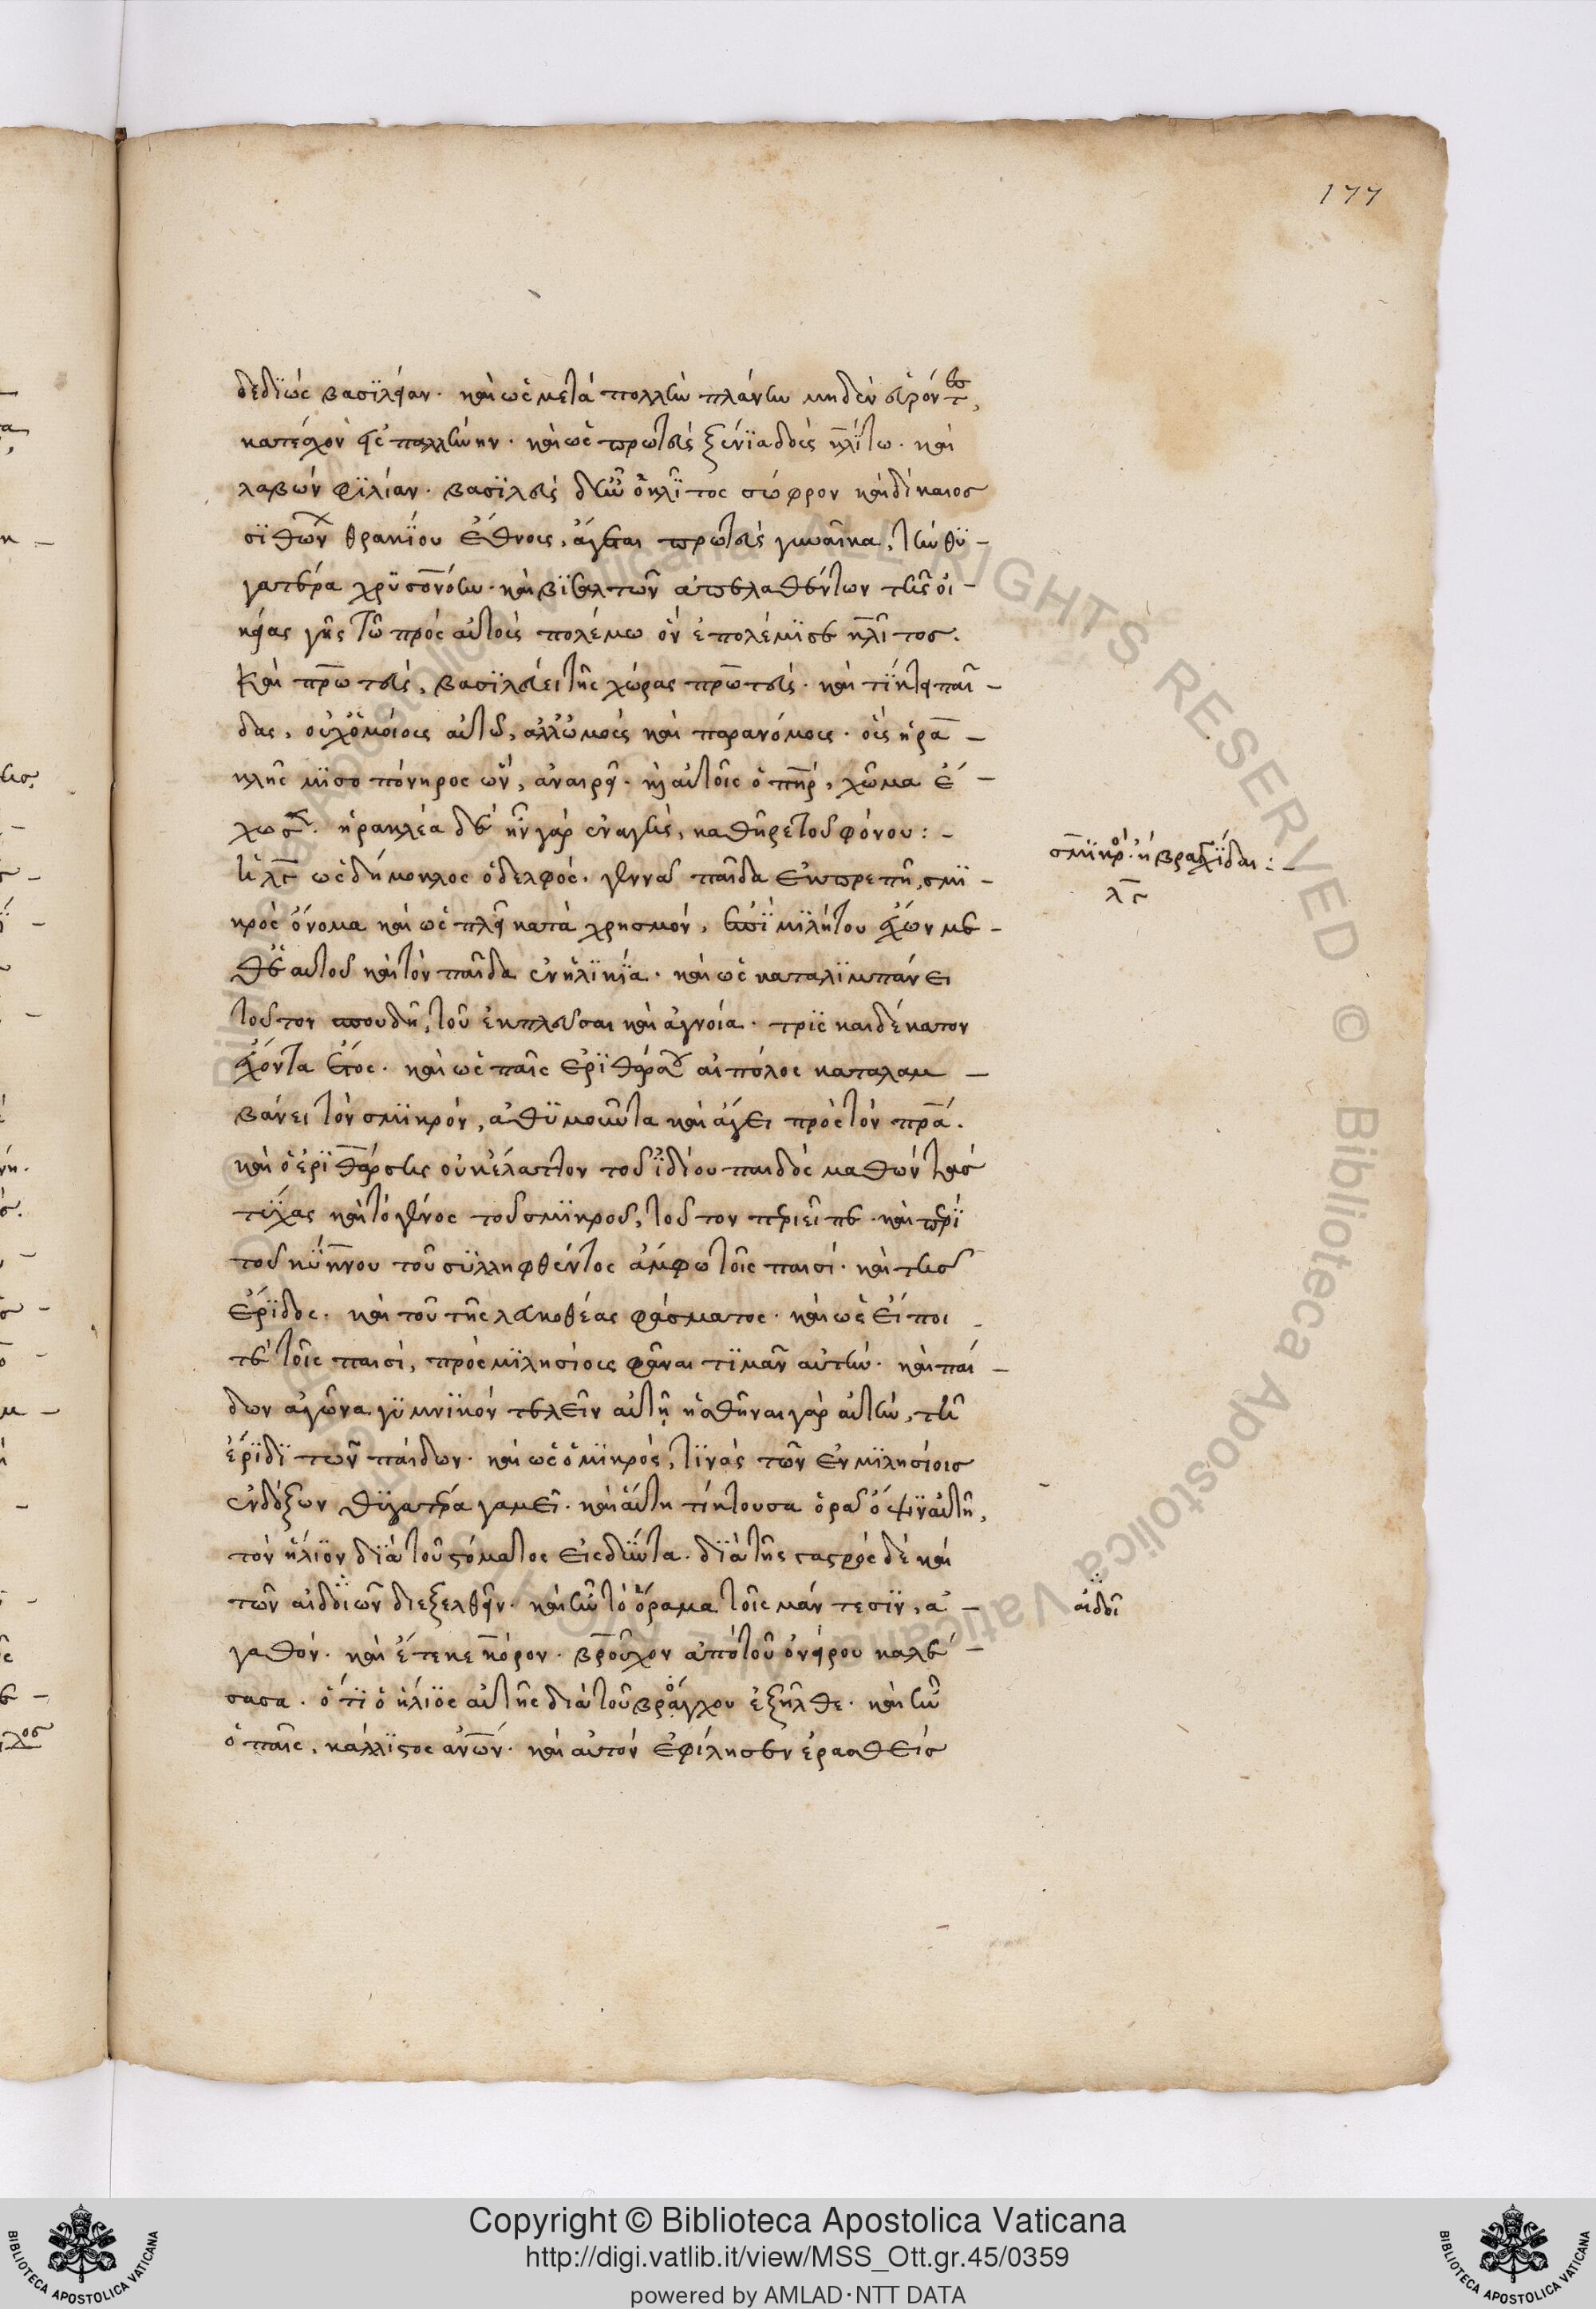 177
δεδϊὼς βασϊλείαν. καὶ ὡς μετὰ πολλὴν πλάνην μηδὲν εὑρόντες,
κατέσχον εἰς παλλήνην. καὶ ὡς πρωτεὺς ξενΐα δοὺς κλΐτω. καὶ
λαβὼν φϊλίαν. βασϊλεὺς δὲ ἦν ὁ κλῖτος σώφρον καὶ δίκαιος
σϊθὼν θρακΐου ἔθνους, ἄγεται πρωτεὺς γυναῖκα, τὴν θϋ –
γατέρα χρϋσονόην. καὶ βϊσαλτῶν ἀπελαθέντων τῆς οἰ –
κείας γῆς τῶ πρὸς αὐτοὺς πολέμω ὃν ἐπολέμϊσε κλῖτος.
Καὶ πρωτεὺς, βασϊλεύει τῆς χώρας πρωτεύς. καὶ τΐκτει παῖ –
δας, οὐχ ὁμοίους αὐτῶ, ἀλλ᾽ ὠμοὺς καὶ παρανόμους. οὓς ἡρα –
κλῆς μϊσοπόνηρος ὢν, ἀναιρεῖ. καὶ αὐτοῖς ὁ πηρ, χῶμα ἔ –
χωσεν. ἡρακλέα δὲ ἦν γὰρ ἐναγὴς, καθῆρε τοῦ φόνου: –
ἡ λς ὡς δήμοκλος ὁ δελφὸς, γεννᾶ παῖδα ἐκπρεπῆ, σμϊ –
κρὸς ὄνομα καὶ ὡς πλεῖ κατὰ χρησμὸν, ἐπῒ μϊλήτου ἔχων με –
θ᾽ ἑαυτοῦ καὶ τὸν παῖδα ἐν ἡλϊκΐα. καὶ ὡς καταλϊμπάνει
τοῦτον σπουδῆ, τοῦ ἐκπλεῦσαι καὶ ἀγνοία. τρϊς καιδέκατον
ἔχοντα ἔτος. καὶ ὡς παῖς ἐρϊθάρσου αἰπόλος καταλαμ –
βάνει τὸν σμϊκρὸν, ἀθϋμοῦντα καὶ ἄγει πρὸς τὸν πρα.
καὶ ὁ ἐρϊθάρσης οὐκ ἔλαττον τοῦ ϊδίου παιδὸς μαθὼν τὰς
τύχας καὶ τὸ γένος τοῦ σμϊκροῦ, τοῦτον περιεῖπε. καὶ περῒ
τοῦ κύκνου τοῦ συλληφθέντος ἄμφω τοῖς παισί. καὶ τῆς
ἔρϊδος. καὶ τοῦ τῆς λευκοθέας φάσματος. καὶ ὡς εἴποι
τε τοῖς παισὶ, πρὸς μϊλησίοις φᾶναι τϊμᾶν αὐτήν. καὶ παί –
δων ἀγῶνα γϋμνϊκὸν τελεῖν αὐτῆ ἡσθῆναι γὰρ αὐτὴν, τῆ
ἔρϊδϊ τῶν παίδων. καὶ ὡς ὁ μϊκρὸς, τϊνὰς τῶν ἐν μϊλησίοις
ἐνδόξων θϋγατέρα γαμεῖ. καὶ αὕτη τίκτουσα ὁρᾶ ὄψϊν αὐτῆ,
τὸν ἥλϊον δϊὰ τοῦ στόματος εἰσδῦντα. δϊὰ τῆς γαστρὸς δὲ καὶ
τῶν αἰδοίων διεξελθεῖν. καὶ ἦν τὸ ὅραμα τοῖς μάντεσϊν, ἀ –
γαθόν. καὶ ἔτεκε κόρον. βροῦχον ἀπὸ τοῦ ὀνείρου καλέ –
σασα. ὅτϊ ὁ ἥλϊος αὐτῆς διὰ τοῦ βρόγχου ἐξῆλθε. καὶ ἦν
ὁ παῖς, κάλλϊστος ἀνων. καὶ αὐτὸν ἐφίλησεν ἐρασθεὶς
σμϊκρο. ἡ βραγχΐδαι: –
λς
αἰδοι
Copyright © Biblioteca Apostolica Vaticana
http://digi.vatlib.it/view/MSS_Ott.gr.45/0359
powered by AMLAD·NTT DATA